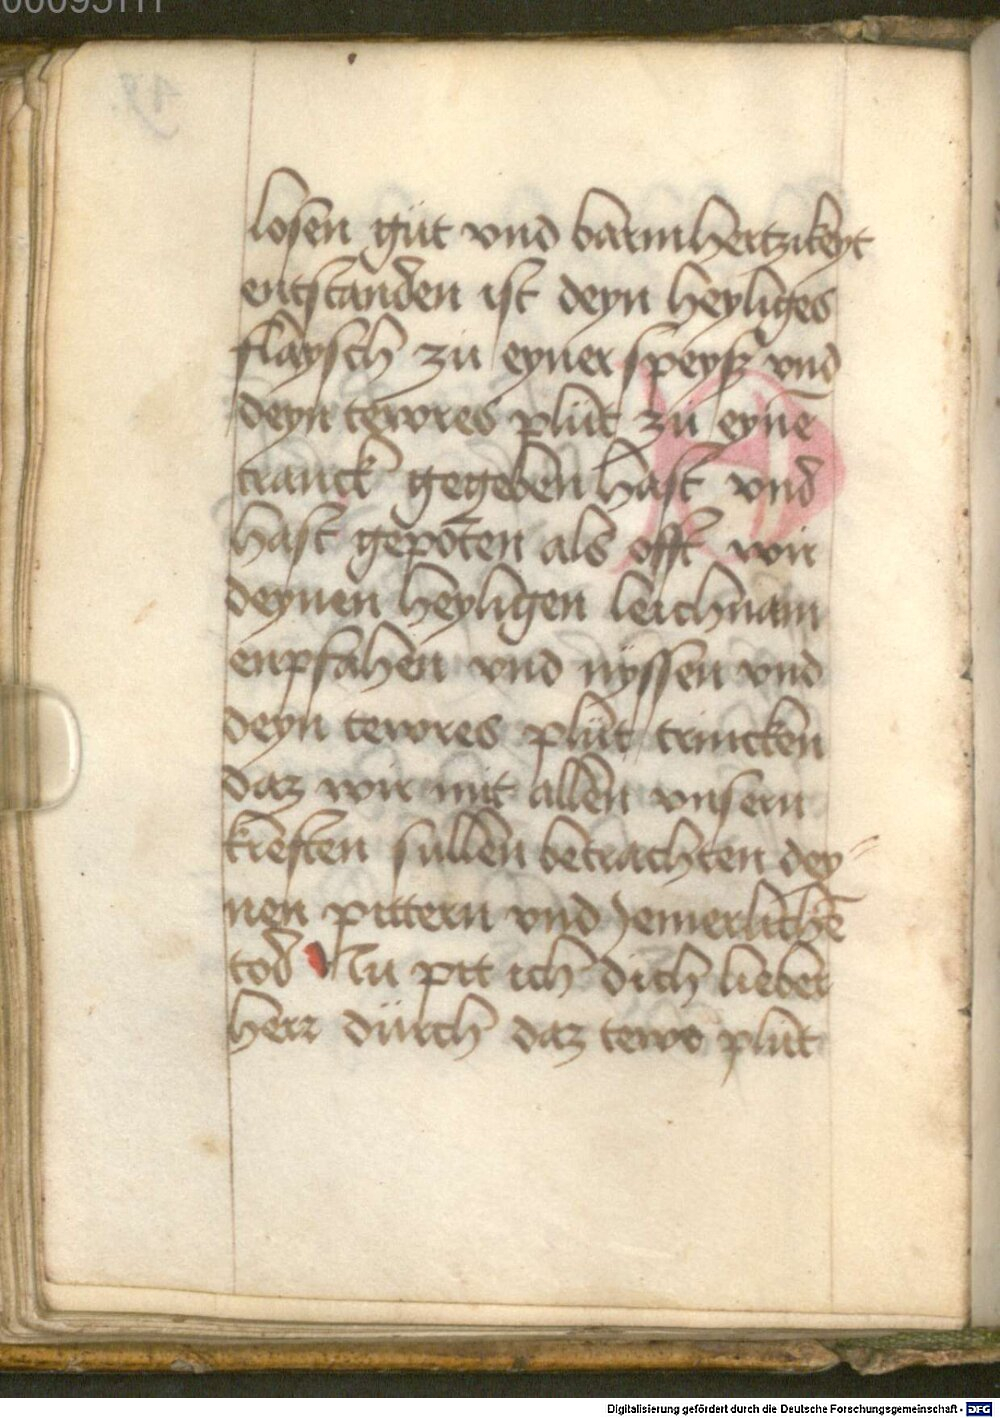 losen güt vnd barmhertzikeyt
entstanden ist deyn heyliges
flaysch zü eyner speysz vnd
deyn tewres plüt zü eynē
tranck gegeben hast vnd
hast gepoten als offt wir
deynen heyligen leichnam
enpfahen vnd nyssen vnd
deyn tewres plüt trincken
daz wir mit allen vnsern
kreften süllen betrachten dey
nen pittern vnd Jemerlichē
tod Nu pit ich dich lieber
herr dürch daz tewr plüt
Digitalisierung gefördert durch die Deutsche Forschungsgemeinschaft - DFG